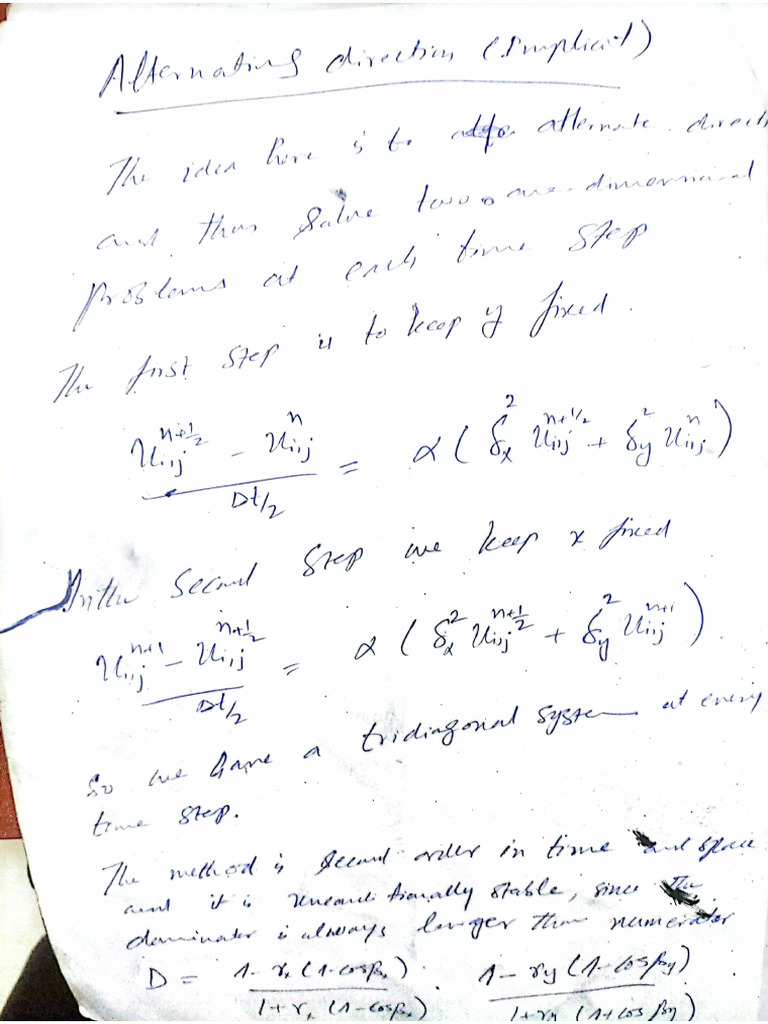 Alternating direction (Implicit)
The idea here is to alternate direct
and thus solve two one-dimensional
problems at each time step
The first step is to keep y fixed.
\frac{u_{i,j}^{n+\frac{1}{2}} - u_{i,j}^{n}}{Dt/2} = α ( δ_x^2 u_{i,j}^{n+1/2} + δ_y^2 u_{i,j}^{n} )
In the second step we keep x fixed
\frac{u_{i,j}^{n+1} - u_{i,j}^{n+\frac{1}{2}}}{Dt/2} = α ( δ_x^2 u_{i,j}^{n+\frac{1}{2}} + δ_y^2 u_{i,j}^{n+1} )
So we have a tridiagonal system at every
time step.
The method is second order in time and space
and it is unconditionally stable, since the
dominator is always larger than numerator
D = \frac{1 - r_x (1 - cosβ_x)}{1 + r_x (1 - cosβ_x)} . \frac{1 - r_y (1 - cosβ_y)}{1 + r_y (1 + cosβ_y)}